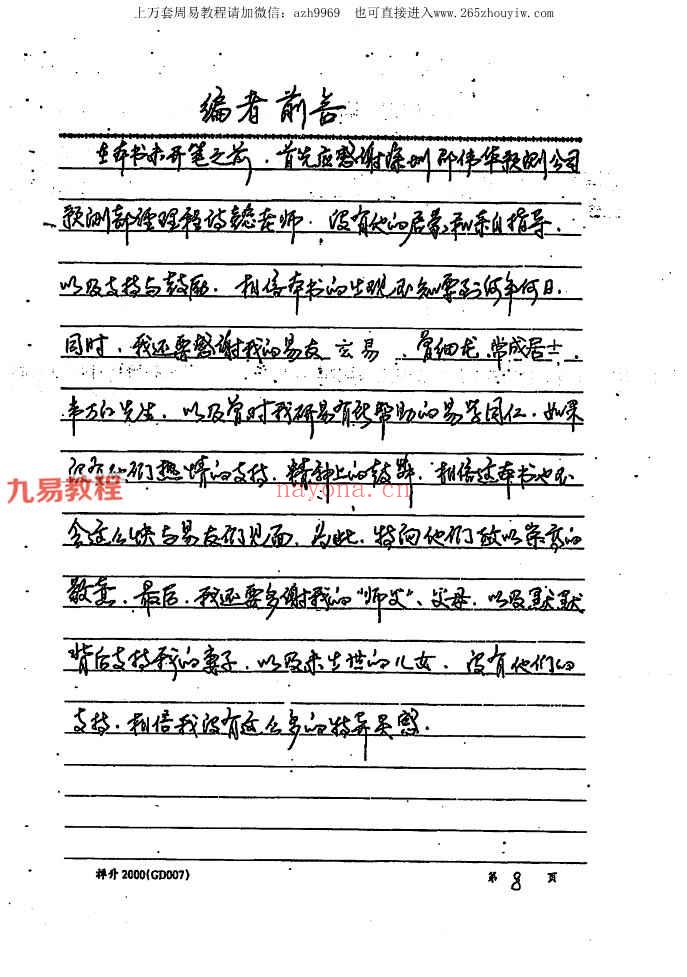 上万套周易教程请加微信：azh9969 也可直接进入www.265zhouyiw.com
编者前言
在本书未开笔之前，首先应感谢深圳邵伟华预测公司
预测部经理程诗懿老师，没有他的启蒙和亲自指导，
以及支持与鼓励，相信本书的出现不知要到何年何日。
同时，我还要感谢我的易友玄易、曾细龙、常成居士、
丰万仁先生，以及曾对我研易有所帮助的易学同仁，如果
没有他们热情的支持，精神上的鼓舞，相信这本书也不
九易教程
nayona.cn
会这么快与易友们见面，为此，特向他们致以崇高的
敬意，最后，我还要多谢我的“师父”、父母，以及默默
背后支持我的妻子，以及未出世的儿女，没有他们的
支持，相信我没有这么多的特异灵感。
祥升2000(GD007)
第 8 页